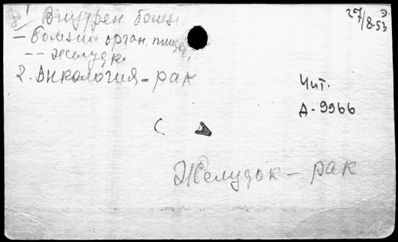 1. Внутрен. болез.
- болезни орган. пищ.
-- желудк.
2. Онкология - рак
27/8-53 Э.
Чит.
Д-9966
Желудок - рак